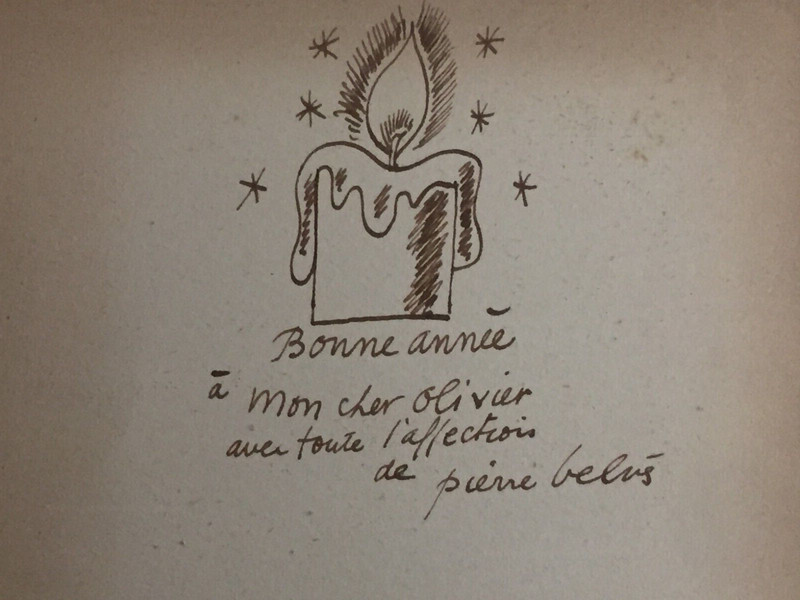 Bonne année
à mon cher Olivier
avec toute l'affection
de pierre belvès